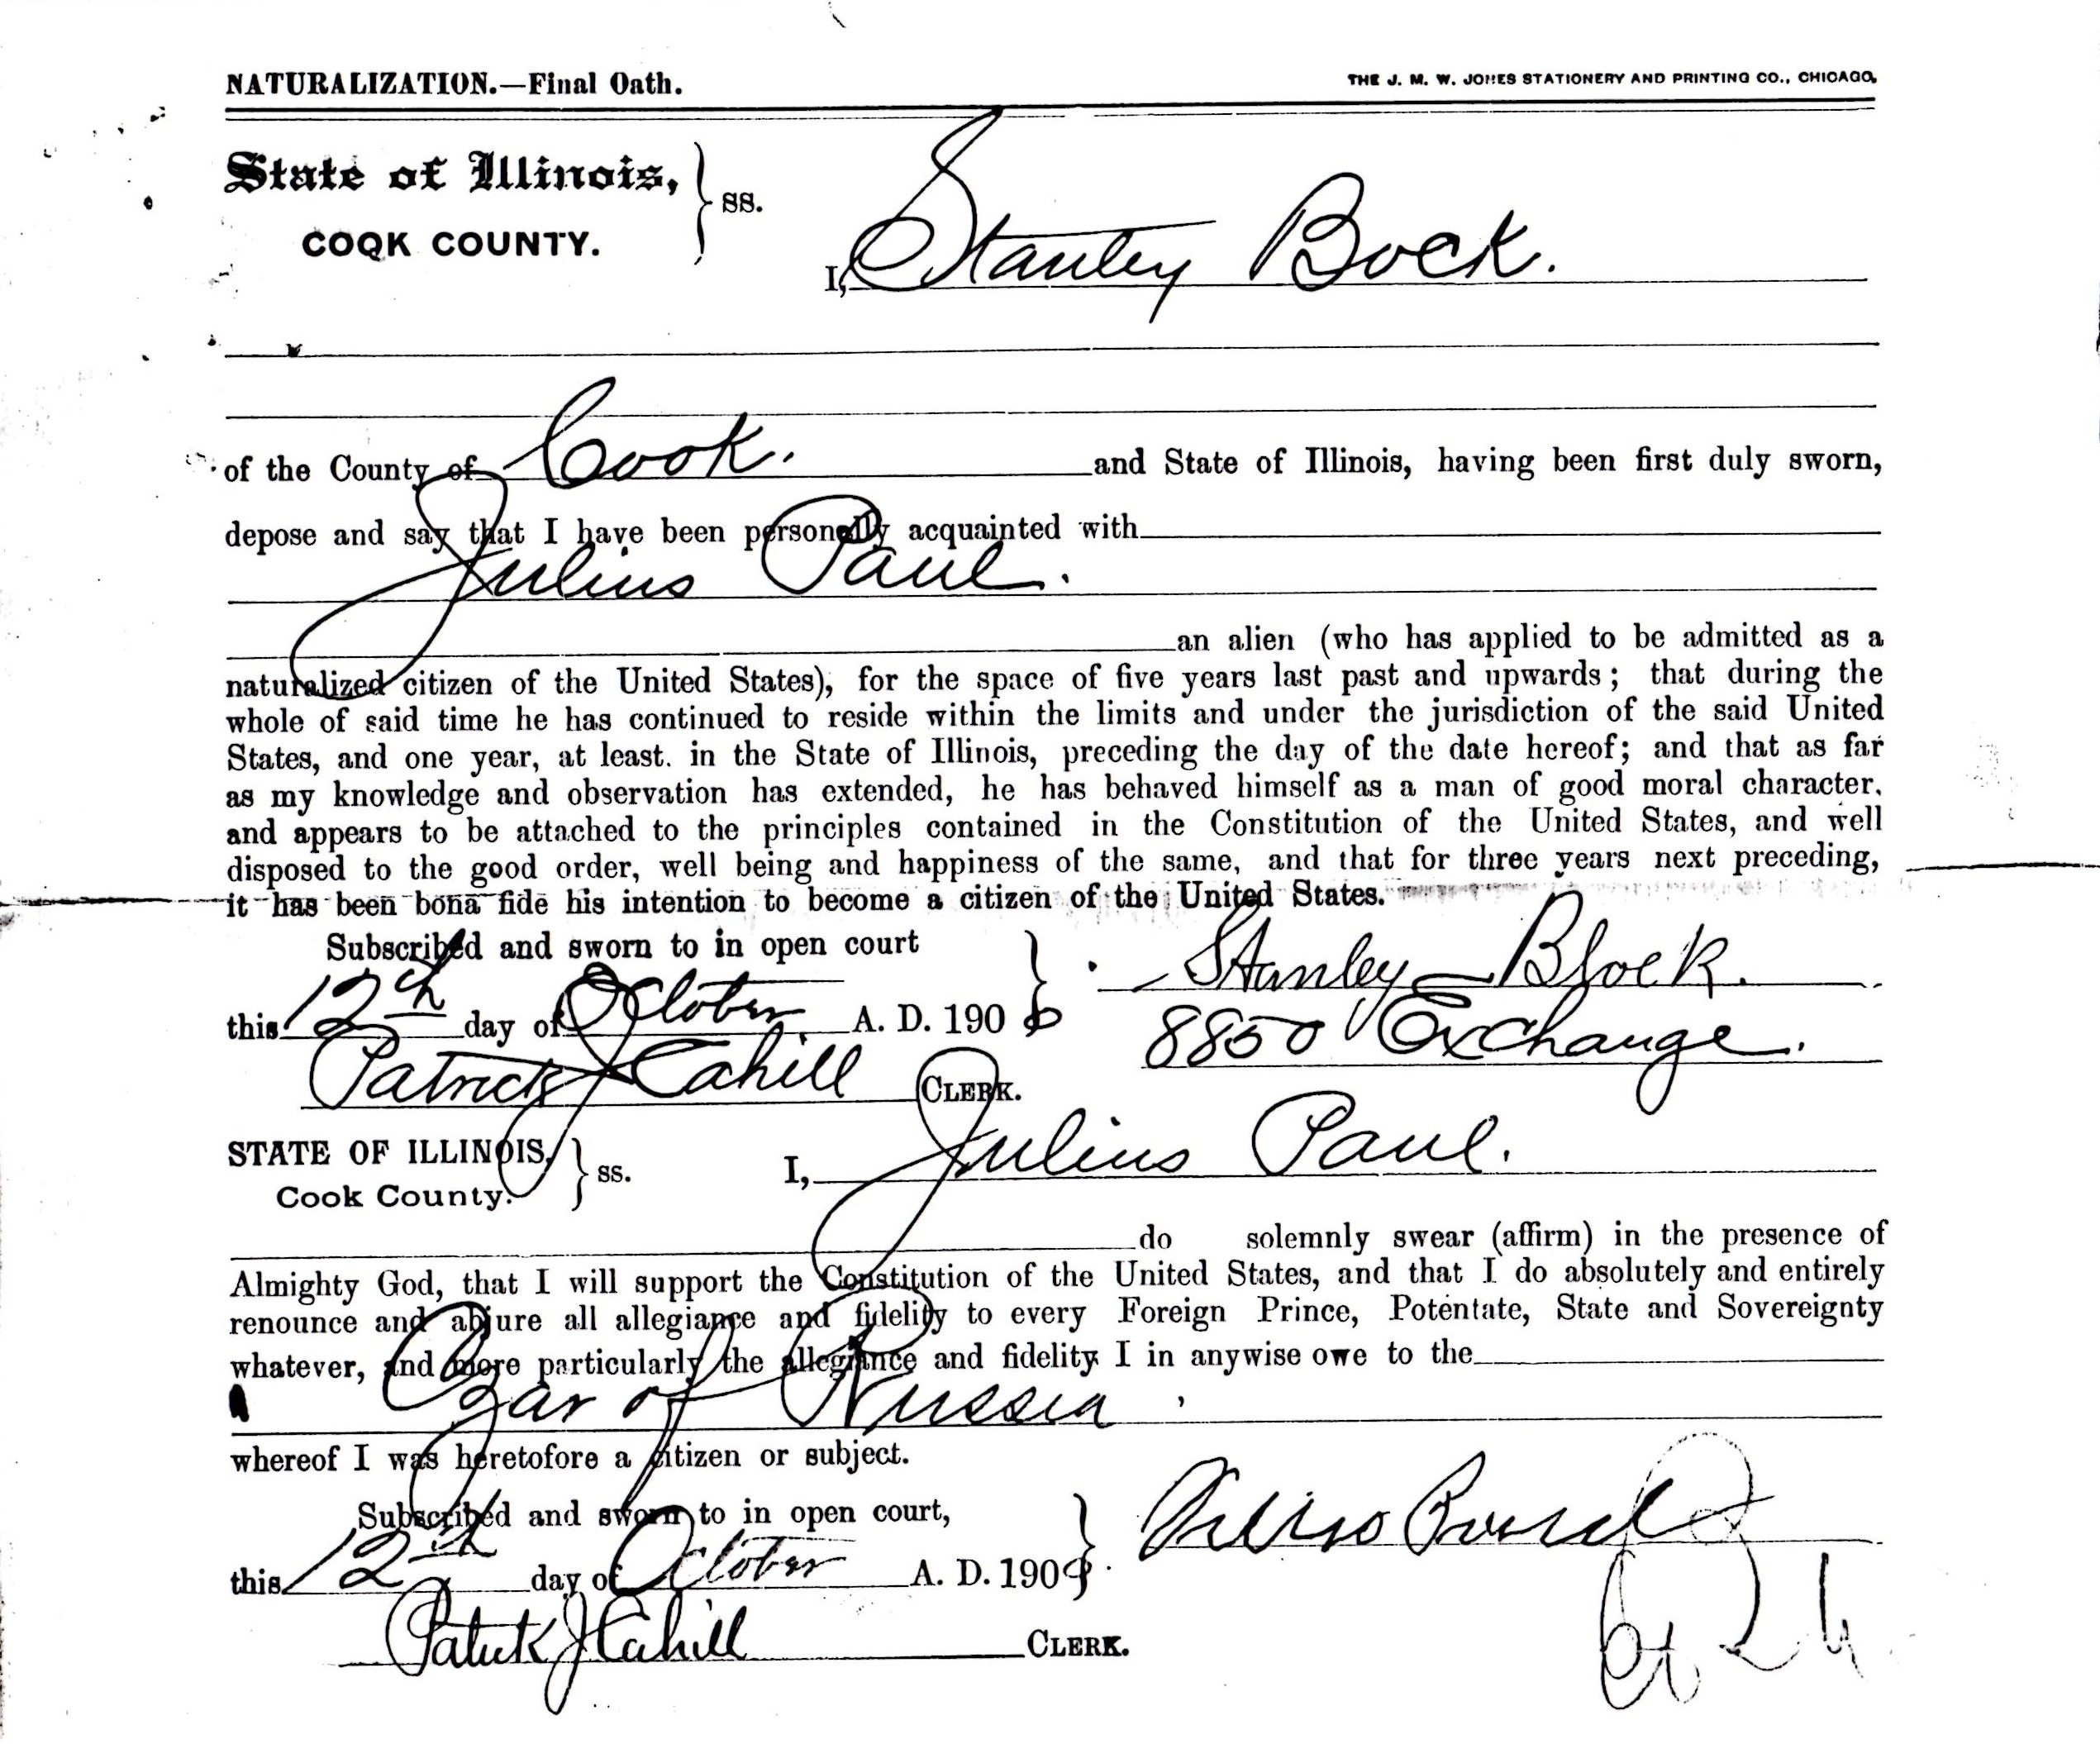 NATURALIZATION.—Final Oath. THE J. M. W. JONES STATIONERY AND PRINTING CO., CHICAGO.
State of Illinois, } ss.
COOK COUNTY.
I, Stanley Bock.
of the County of Cook. and State of Illinois, having been first duly sworn,
depose and say that I have been personally acquainted with
Julius Paul.
an alien (who has applied to be admitted as a
naturalized citizen of the United States), for the space of five years last past and upwards; that during the
whole of said time he has continued to reside within the limits and under the jurisdiction of the said United
States, and one year, at least. in the State of Illinois, preceding the day of the date hereof; and that as far
as my knowledge and observation has extended, he has behaved himself as a man of good moral character,
and appears to be attached to the principles contained in the Constitution of the United States, and well
disposed to the good order, well being and happiness of the same, and that for three years next preceding,
it has been bona fide his intention to become a citizen of the United States.
Subscribed and sworn to in open court } Stanley Block.
this 12th day of October A. D. 190 8850 Exchange.
Patrick J Cahill CLERK.
STATE OF ILLINOIS, } ss.
Cook County.
I, Julius Paul.
do solemnly swear (affirm) in the presence of
Almighty God, that I will support the Constitution of the United States, and that I do absolutely and entirely
renounce and abjure all allegiance and fidelity to every Foreign Prince, Potentate, State and Sovereignty
whatever, and more particularly the allegiance and fidelity I in anywise owe to the
Czar of Russia
whereof I was heretofore a citizen or subject.
Subscribed and sworn to in open court, }
this 12th day of October A. D. 190
Patrick J Cahill CLERK.